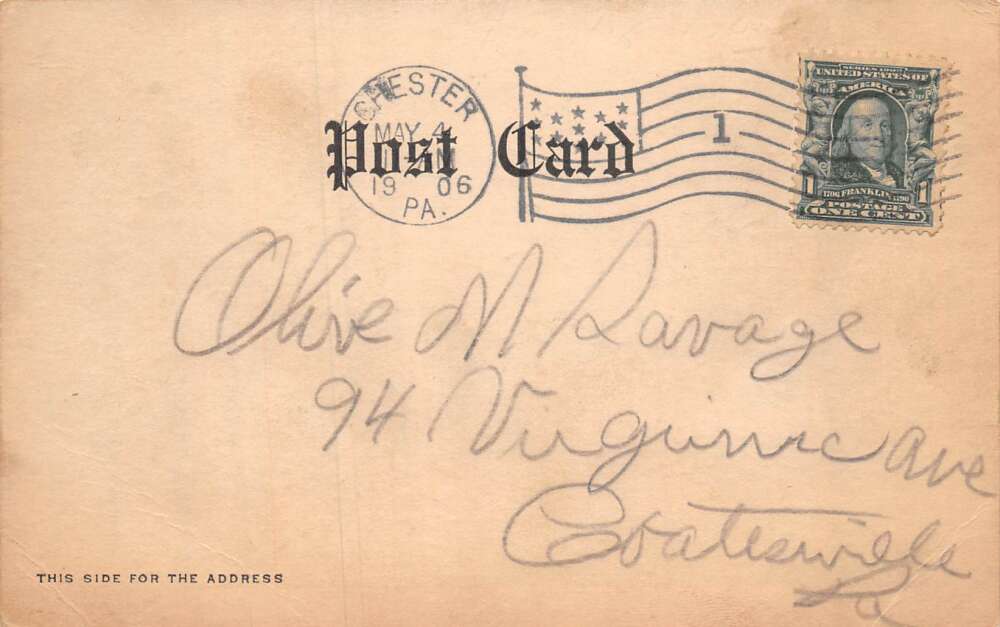 CHESTER
MAY 4
19 06
PA.
1
Post Card
SERIES 1902
UNITED STATES OF
AMERICA
1706 FRANKLIN 1790
1 POSTAGE 1
ONE CENT
Olive M Savage
94 Virginia Ave
Coatesville
Pa
THIS SIDE FOR THE ADDRESS